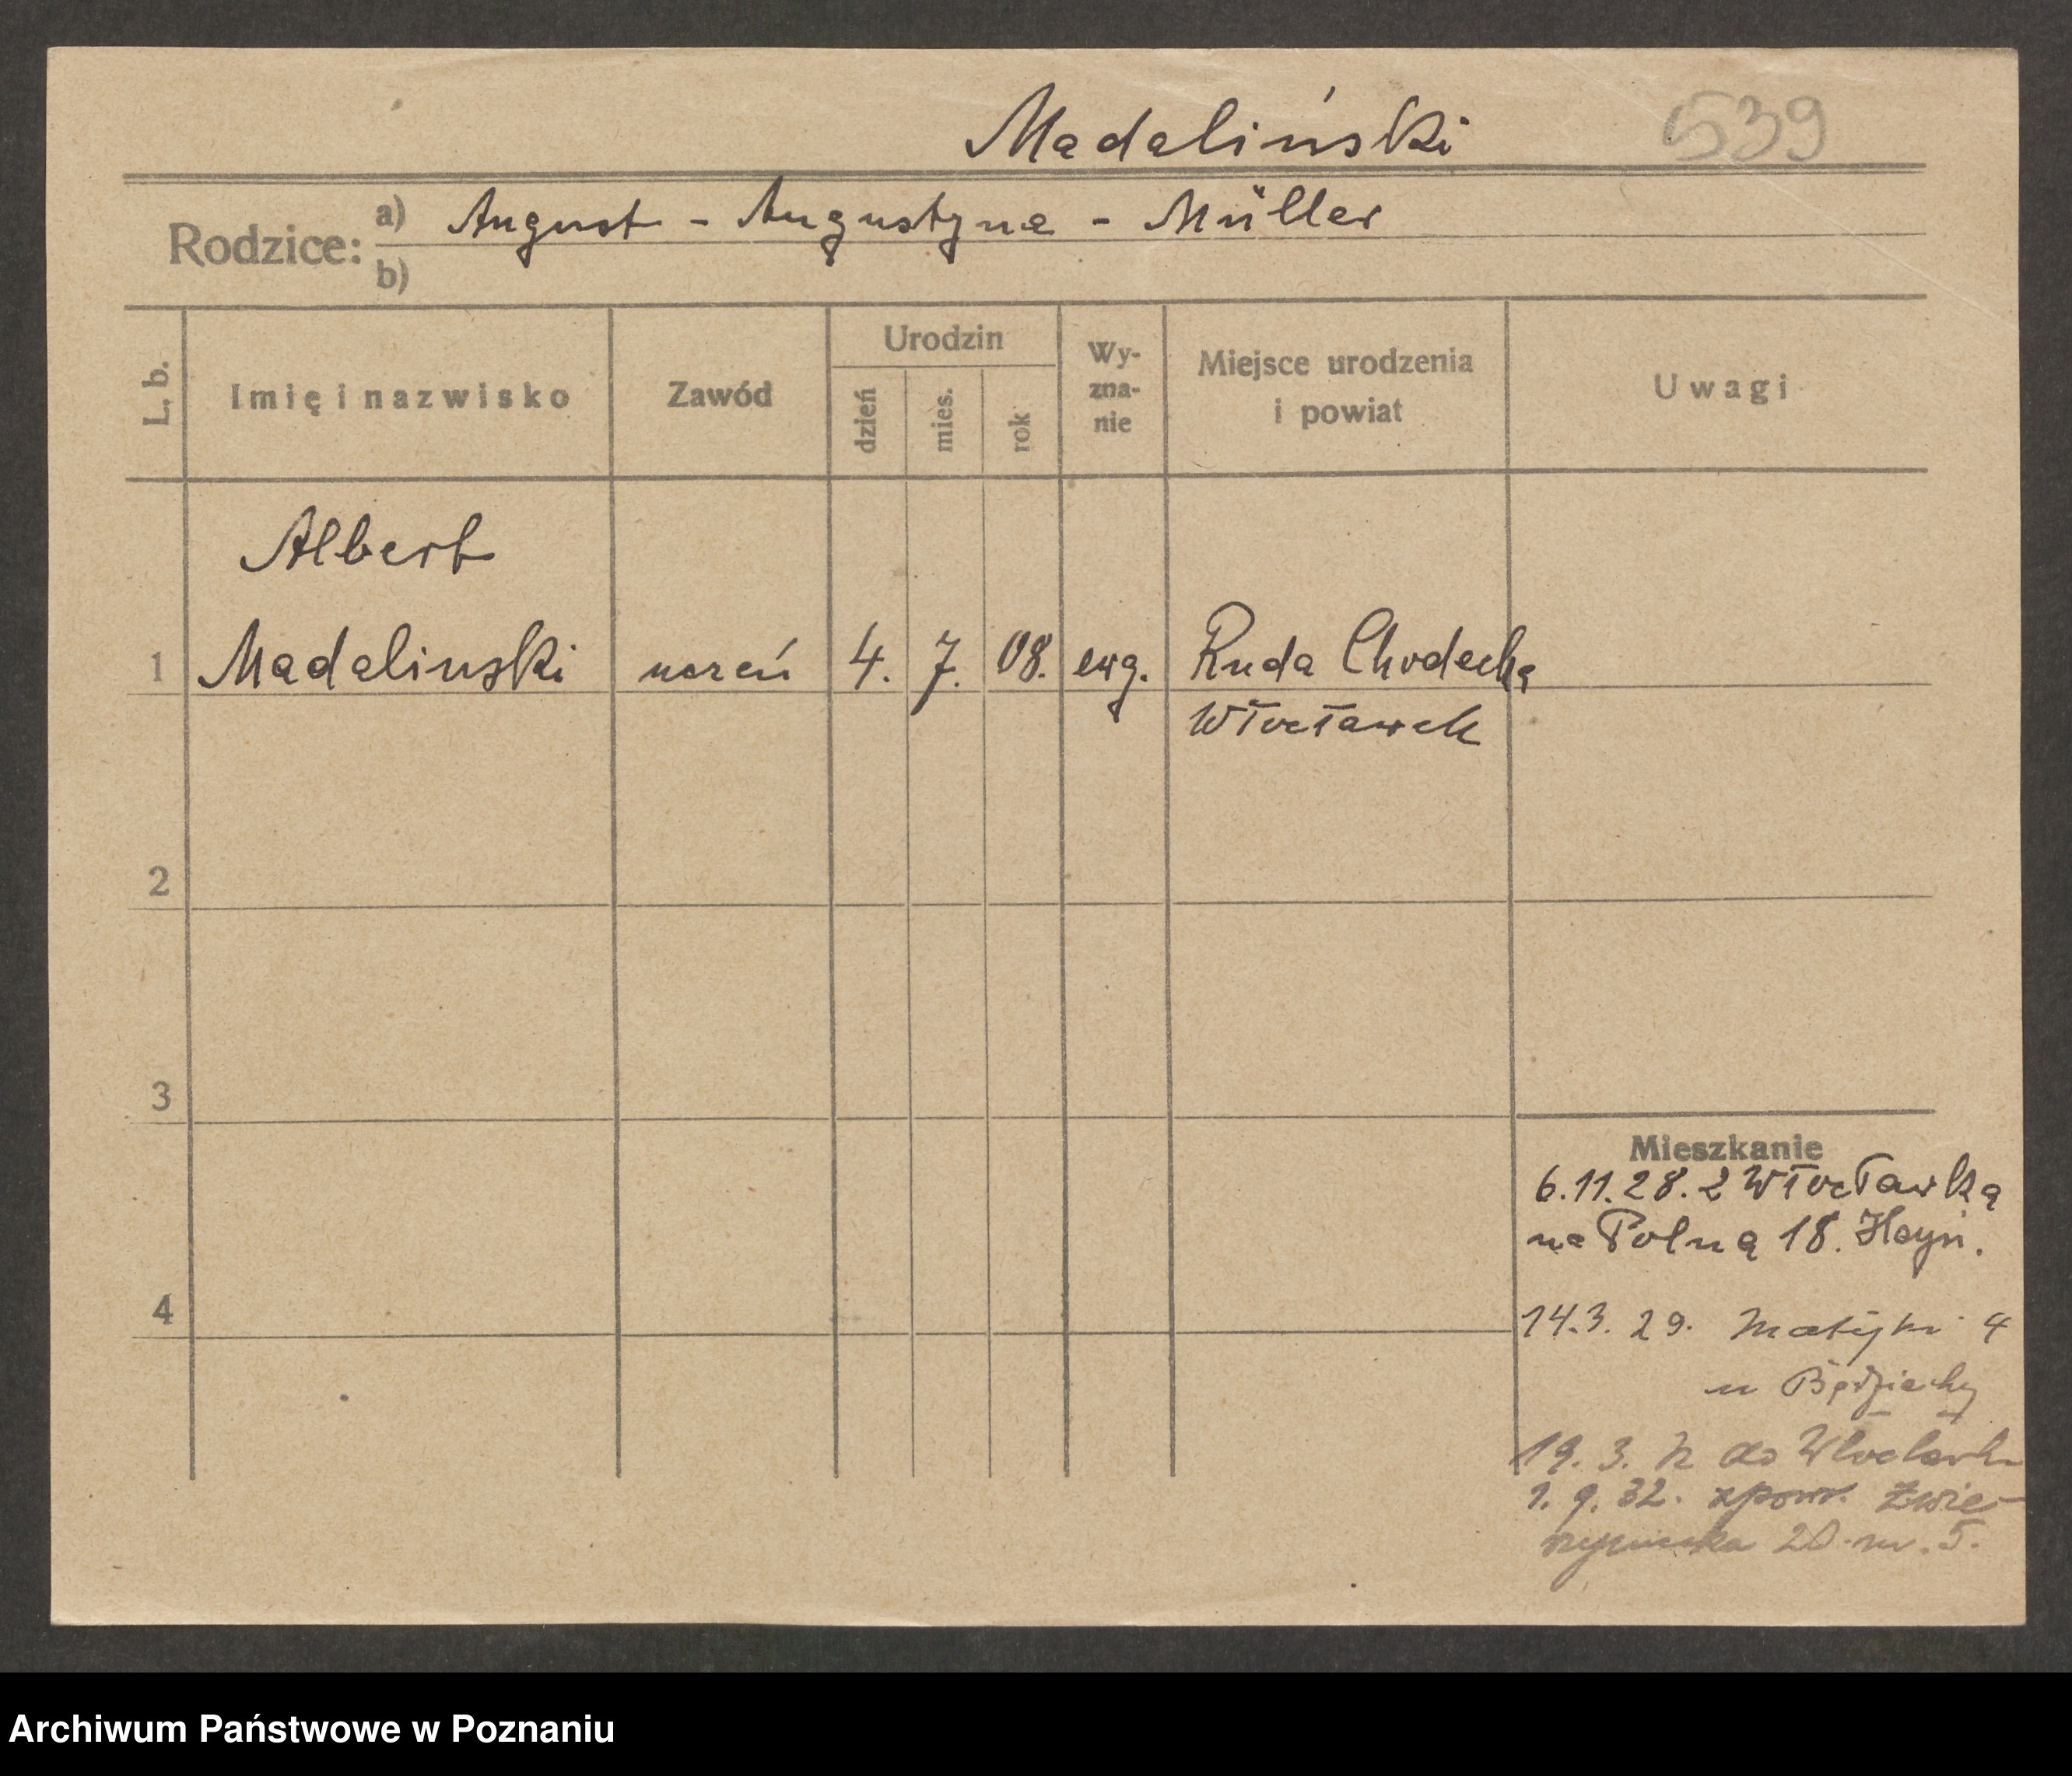 Madaliński 539
Rodzice: a) August - Augustyna - Müller
b)
L. b. Imię i nazwisko Zawód Urodzin dzień mies. rok Wy-zna-nie Miejsce urodzenia i powiat Uwagi
Albert
1 Madalinski uczeń 4. 7. 08. ewg. Ruda Chodecka
Włocławek
2
3
Mieszkanie
6.11.28. z Włocławka
na Polną 18.
4
14.3.29. Matejki 4
u
19. 3. do Włocławka
1. 9. 32. zpowr. Zwie-
rzyniecka 20 m. 5.
Archiwum Państwowe w Poznaniu